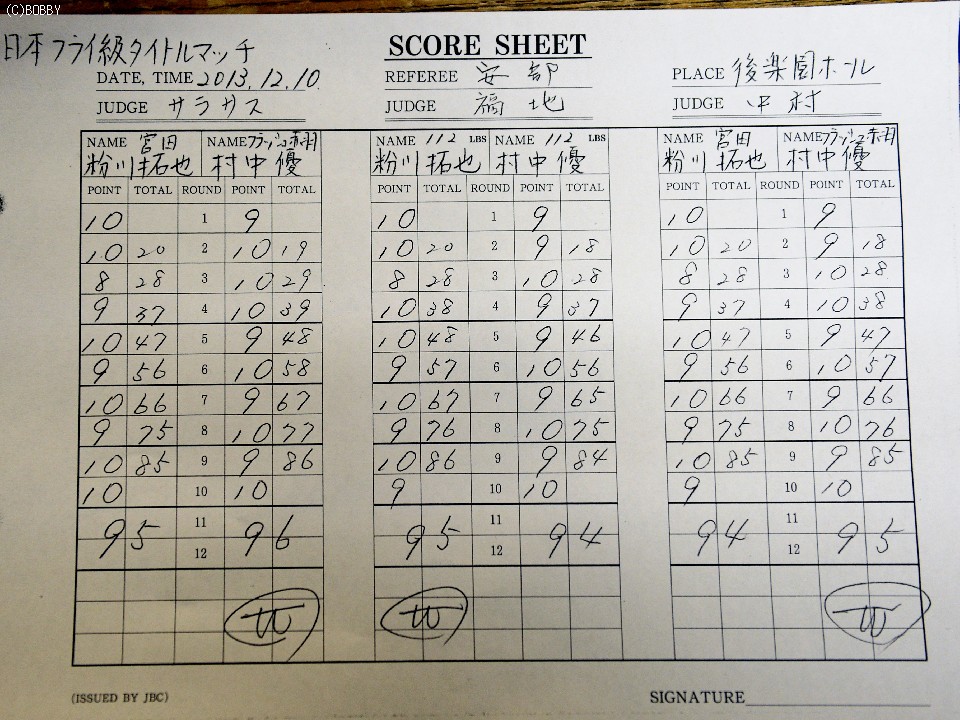 (C)BOBBY
日本フライ級タイトルマッチ
SCORE SHEET
DATE, TIME 2013.12.10.
REFEREE 安部
PLACE 後楽園ホール
JUDGE サラサス
JUDGE 福地
JUDGE 中村
NAME 宮田 NAME フラッシュ赤羽 NAME 112 LBS NAME 112 LBS NAME 宮田 NAME フラッシュ赤羽
粉川拓也 村中優 粉川拓也 村中優 粉川拓也 村中優
POINT TOTAL ROUND POINT TOTAL POINT TOTAL ROUND POINT TOTAL POINT TOTAL ROUND POINT TOTAL
10 1 9 10 1 9 10 1 9
10 20 2 10 19 10 20 2 9 18 10 20 2 9 18
8 28 3 10 29 8 28 3 10 28 8 28 3 10 28
9 37 4 10 39 10 38 4 9 37 9 37 4 10 38
10 47 5 9 48 10 48 5 9 46 10 47 5 9 47
9 56 6 10 58 9 57 6 10 56 9 56 6 10 57
10 66 7 9 67 10 67 7 9 65 10 66 7 9 66
9 75 8 10 77 9 76 8 10 75 9 75 8 10 76
10 85 9 9 86 10 86 9 9 84 10 85 9 9 85
10 10 10 9 10 10 9 10 10
11 11 11
95 96 95 94 94 95
12 12 12
W W W
(ISSUED BY JBC)
SIGNATURE